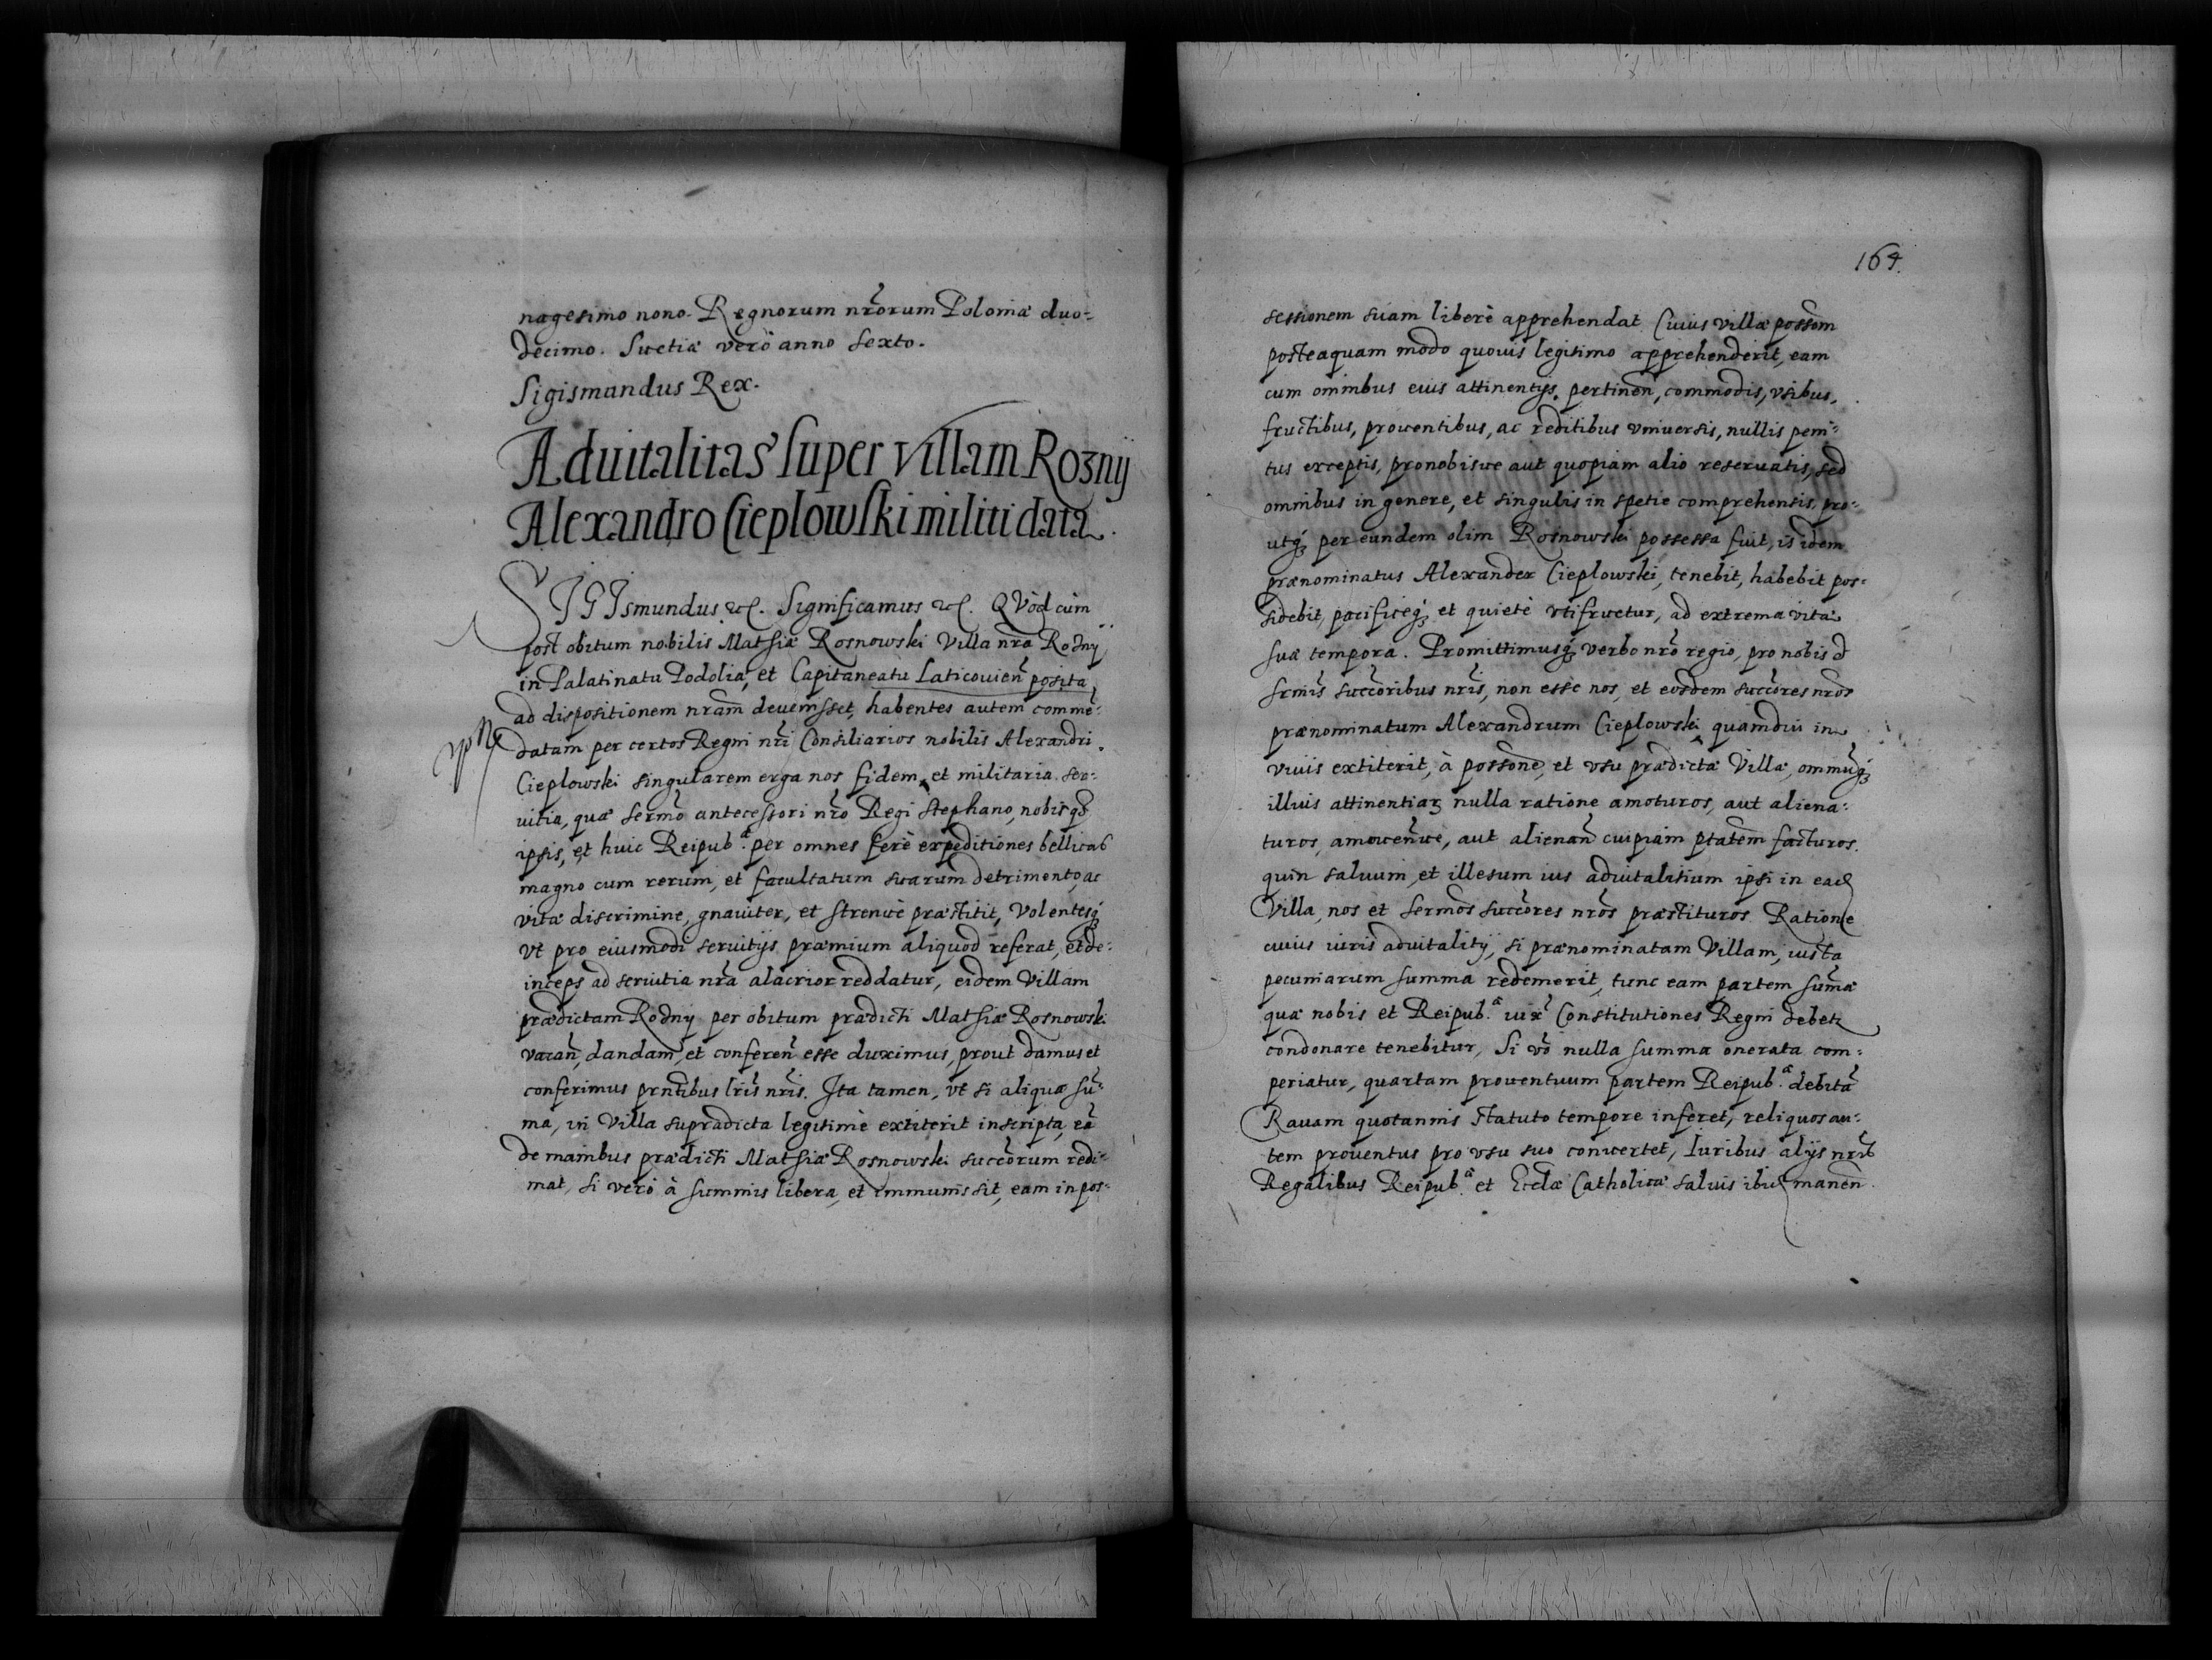 nagesimo nono. Regnorum nr̃orum Poloniæ duo=
decimo. Suetiæ verò anno sexto.
Sigismundus Rex.
Aduitalitas super villam Rozny
Alexandro Cieplowski militi data.
SIGIsmundus etc. Significamus etc. QVòd cùm
post obitum nobilis Mathiæ Rosnowski Villa nr̃a Rozny
in Palatinatu Podoliæ, et Capitaneatu Laticouien̄ posita
ad dispositionem nr̃am deuenisset, habentes autem comme=
datam per certos Regni nr̃i Consiliarios nobilis Alexandri
Cieplowski singularem erga nos fidem, et militaria ser=
uitia, quæ Sermo antecessori nr̃o Regi Stephano, nobisq3
ipsis, et huic Reipub.æ per omnes ferè expeditiones bellicas
magno cum rerum, et facultatum suarum detrimento, ac
vitæ discrimine, gnauiter, et strenuè præstitit, Volentesq3
vt pro eiusmodi seruitijs præmium aliquod referat, et de=
inceps ad seruitia nr̃a alacrior reddatur, eidem Villam
prædictam Rozny per obitum prædicti Mathiæ Rosnowski
vacan̄, dandam, et conferen̄ esse duximus, prout damus et
conferimus pr̃ntibus lr̃is nr̃is. Ita tamen, vt si aliqua sũ=
ma, in Villa supradicta legitimè extiterit inscripta, eã
de manibus prædicti Mathiæ Rosnowski succõrum redi=
mat, si verò à summis libera, et immunis sit, eam in pos=
164.
sessionem suam liberè apprehendat Cuius villæ possõm
posteaquam modo quouis legitimo apprehenderit, eam
cum omnibus eius attinentijs, pertinen̄, commodis, vsibus,
fructibus, prouentibus, ac reditibus vniuersis, nullis peni=
tus exceptis, pro nobisue aut quopiam alio reseruatis, sed
omnibus in genere, et singulis in spetie comprehensis, pro=
utq3 per eundem olim Rosnowski possessa fuit, is idem
prænominatus Alexander Cieplowski, tenebit, habebit pos=
sidebit, pacificeq3, et quietè vtifruetur, ad extrema vitæ
suæ tempora. Promittimusq3 verbo nr̃o regio, pro nobis et
Sr̃mis succõribus nr̃is, non esse nos, et eosdem succõres nr̃os
prænominatum Alexandrum Cieplowski, quamdiu in
viuis extiterit, à possõne, et vsu prædictæ Villæ, omniũq3
illius attinentiar3 nulla ratione amoturos, aut aliena=
turos, amouen̄ue, aut alienan̄ cuipiam ptatem facturos.
quin saluum, et illesum ius aduitalitium ipsi in eađ
Villa, nos et Sermos succõres nr̃os præstituros Ratione
cuius iuris aduitalitij, si prænominatam Villam, iusta
pecuniarum summa redemerit, tunc eam partem sum̃æ
quæ nobis et Reipub.æ iux̃ Constitutiones Regni debet
condonare tenebitur, Si võ nulla summa onerata com=
periatur, quartam prouentuum partem Reipub.æ debitã
Rauam quotannis statuto tempore inferet, reliquos au=
tem prouentus pro vsu suo conuertet, Iuribus alijs nr̃is
Regalibus Reipub.æ et Eccłæ Catholicæ saluis ibiđ manen̄.